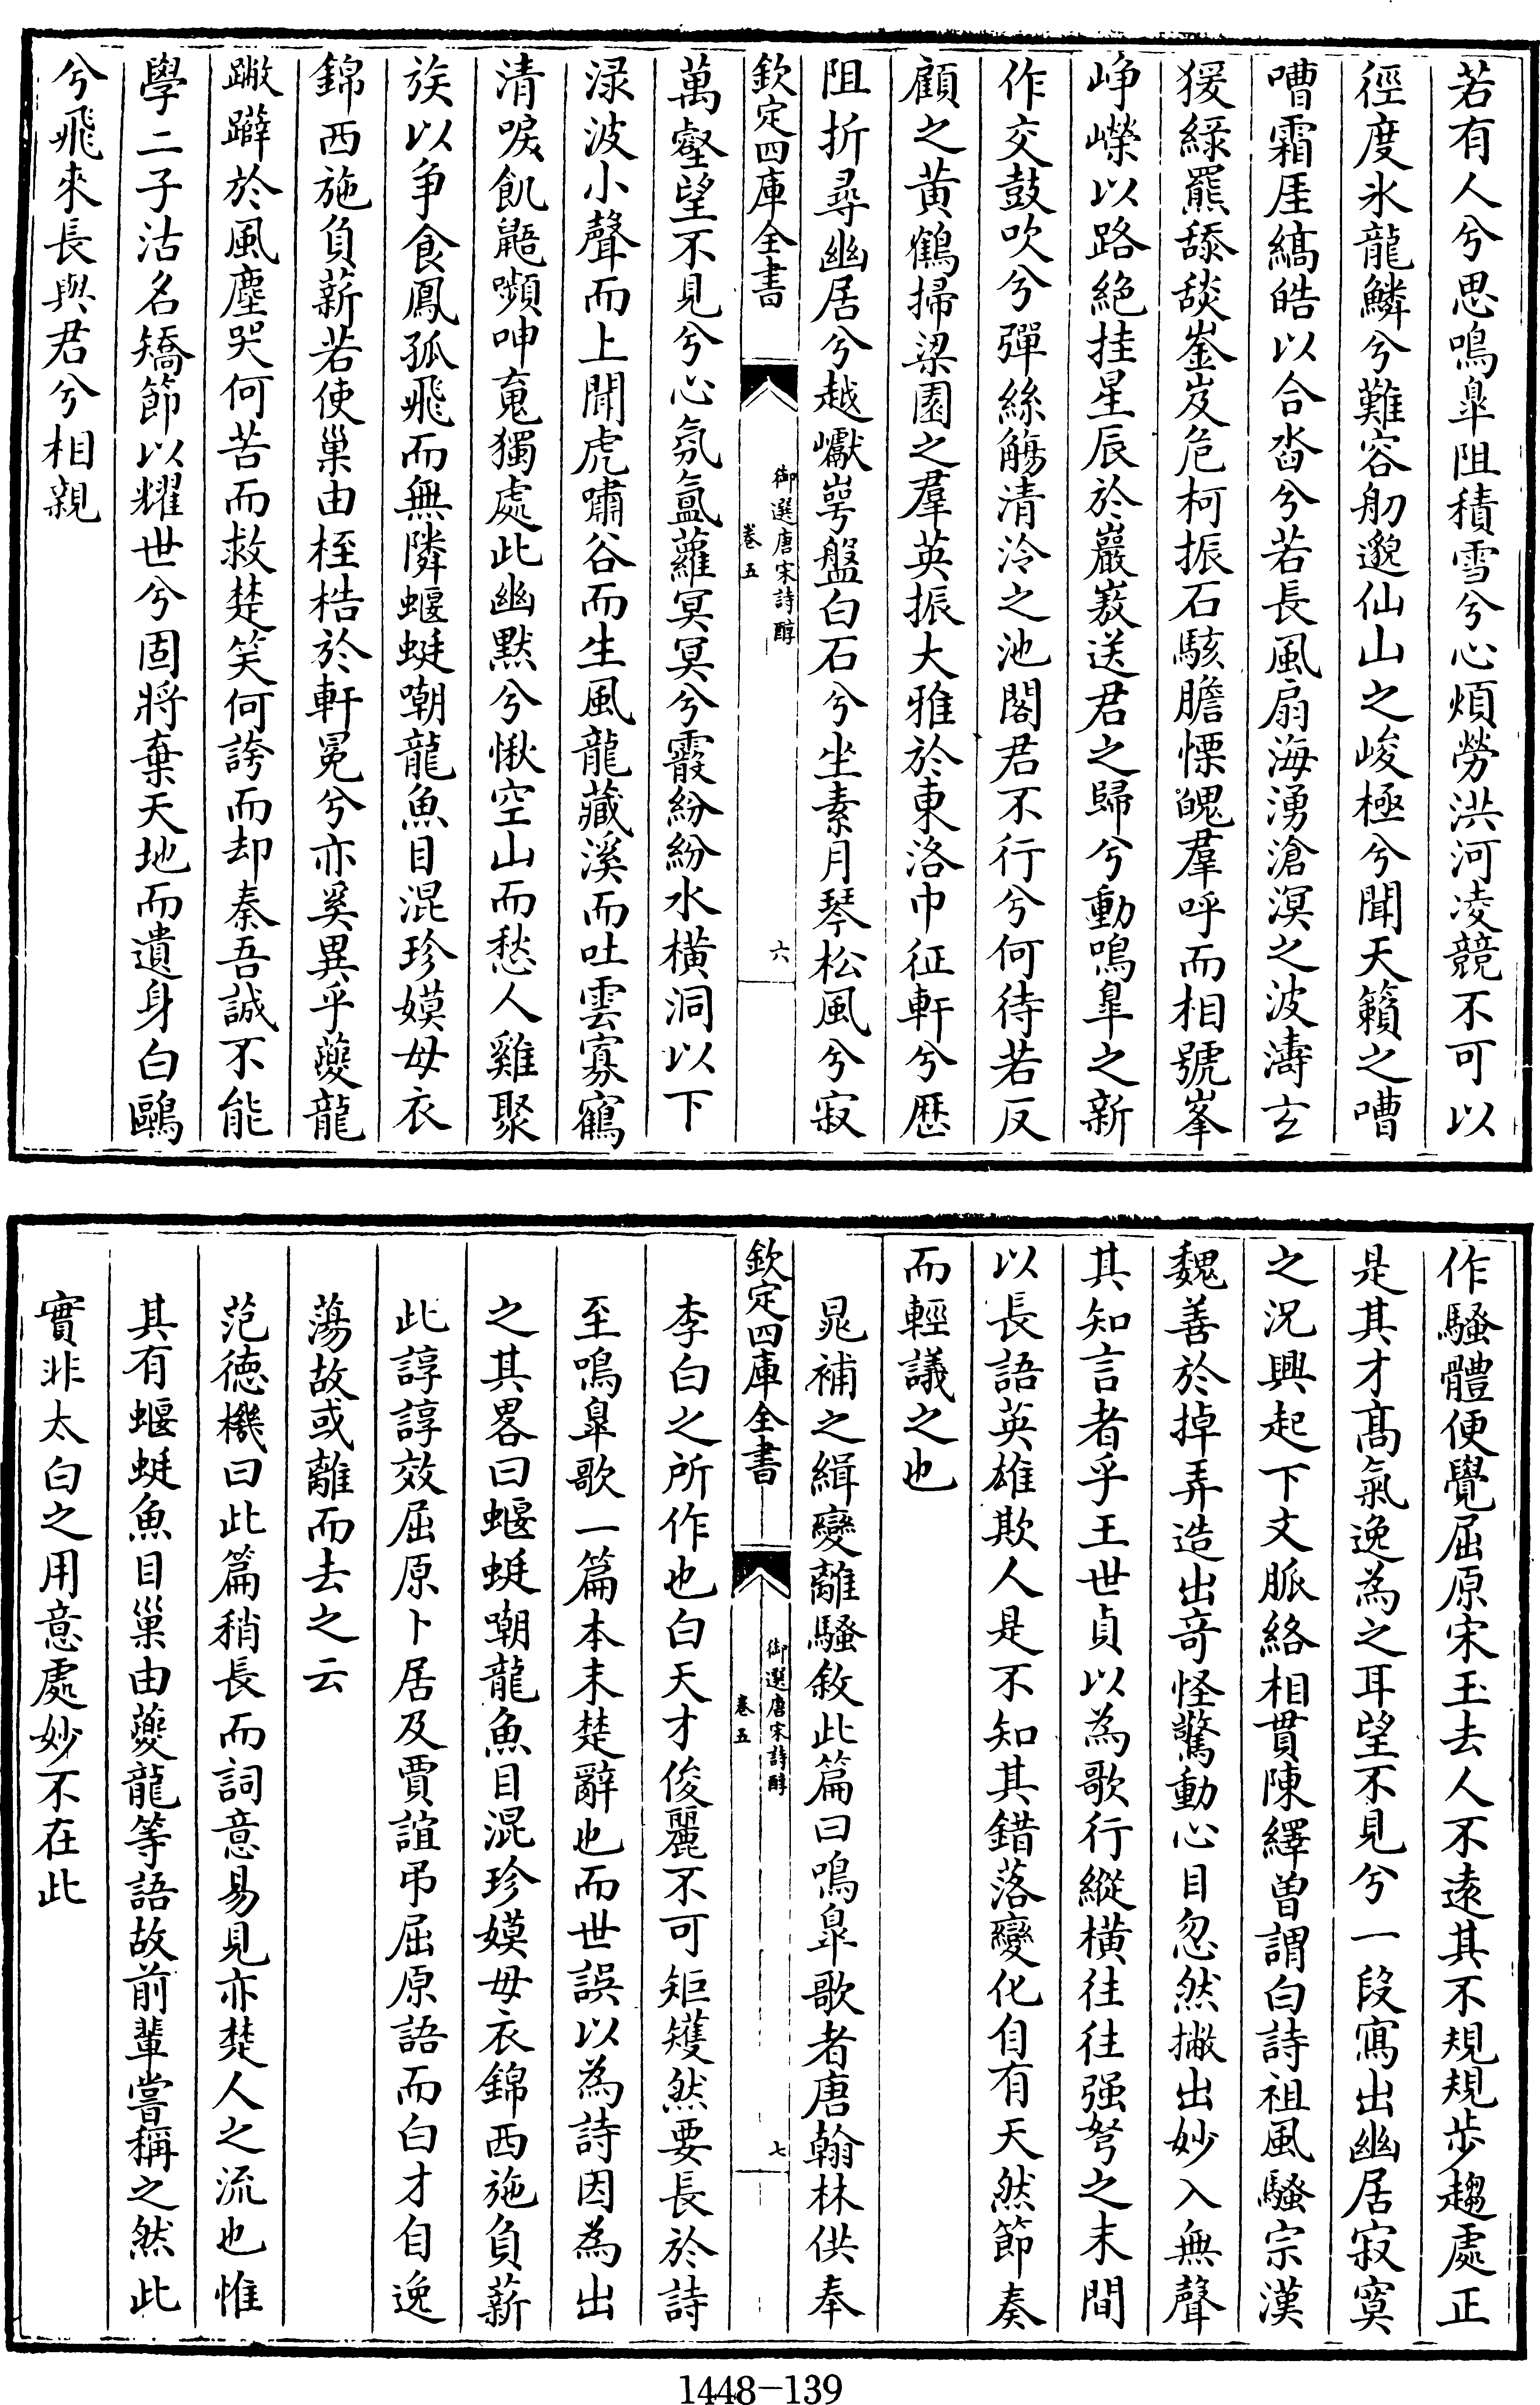 若有人兮思鳴臯阻積雪兮心煩勞洪河凌競不可以
徑度氷龍鱗兮難容舠邈仙山之峻極兮聞天籟之嘈
嘈霜厓縞皓以合沓兮若長風扇海湧滄溟之波濤玄
猨綠羆舔舕崟岌危柯振石駭膽慄魄羣呼而相號峯
峥嶸以路絶挂星辰於巖嶅送君之歸兮動鳴臯之新
作交鼓吹兮彈絲觴清泠之池閣君不行兮何待若反
顧之黄鶴掃梁園之羣英振大雅於東洛巾征軒兮歴
阻折尋幽居兮越巘崿盤白石兮坐素月琴松風兮寂
欽定四庫全書
御選唐宋詩醇
卷五
六
萬壑望不見兮心氛氲蘿冥冥兮霰紛紛水横洞以下
渌波小聲而上聞虎嘯谷而生風龍藏溪而吐雲寡鶴
清唳飢鼯嚬呻䰟獨處此幽黙兮愀空山而愁人雞聚
族以争食鳳孤飛而無隣蝘蜓嘲龍魚目混珍嫫母衣
錦西施負薪若使巢由桎梏於軒冕兮亦奚異乎夔龍
蹩躠於風塵哭何苦而救楚笑何誇而却秦吾誠不能
學二子沽名矯節以耀世兮固將棄天地而遺身白鷗
兮飛來長與君兮相親
作騷體便覺屈原宋玉去人不遠其不規規步趨處正
是其才髙氣逸為之耳望不見兮一段寫出幽居寂寞
之况興起下文脈絡相貫陳繹曽謂白詩祖風騷宗漢
魏善於掉弄造出竒怪驚動心目忽然撇出妙入無聲
其知言者乎王世貞以為歌行縱横往往强弩之末間
以長語英雄欺人是不知其錯落變化自有天然節奏
而輕議之也
晁補之緝變離騷敘此篇曰鳴臯歌者唐翰林供奉
欽定四庫全書
御選唐宋詩醇
卷五
七
李白之所作也白天才俊麗不可矩矱然要長於詩
至鳴臯歌一篇本末楚辭也而世誤以為詩因為出
之其畧曰蝘蜓嘲龍魚目混珍嫫母衣錦西施負薪
此諄諄效屈原卜居及賈誼弔屈原語而白才自逸
蕩故或離而去之云
范德機曰此篇稍長而詞意易見亦楚人之流也惟
其有蝘蜓魚目巢由夔龍等語故前輩嘗稱之然此
實非太白之用意處妙不在此
1448-139